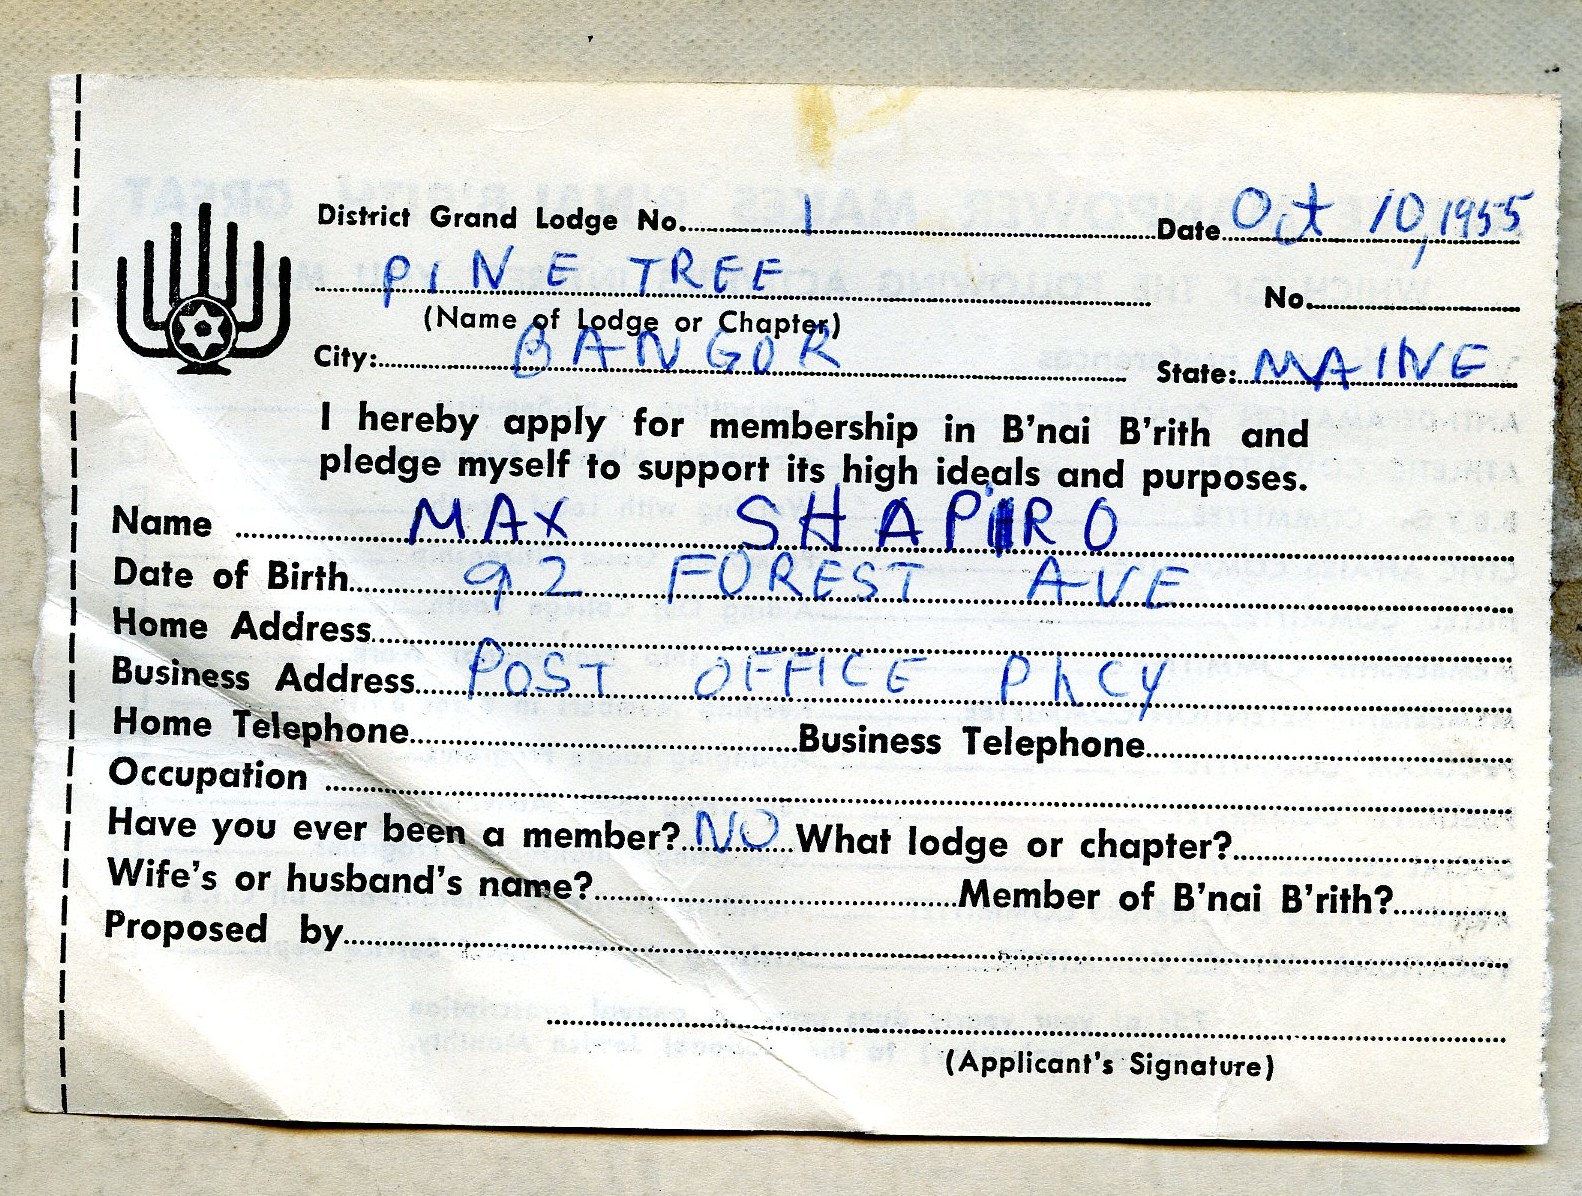 District Grand Lodge No. 1 Date Oct 10, 1955
PINE TREE No.
(Name of Lodge or Chapter)
City: BANGOR State: MAINE
I hereby apply for membership in B'nai B'rith and
pledge myself to support its high ideals and purposes.
Name MAX SHAPIRO
Date of Birth 92 FOREST AVE
Home Address
Business Address POST OFFICE PhCY
Home Telephone Business Telephone
Occupation
Have you ever been a member? NO What lodge or chapter?
Wife's or husband's name? Member of B'nai B'rith?
Proposed by
(Applicant's Signature)